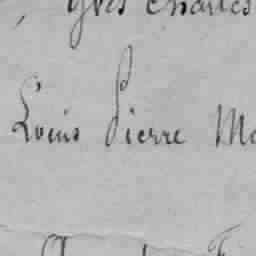 , Yves Charles
Louis Pierre Ma